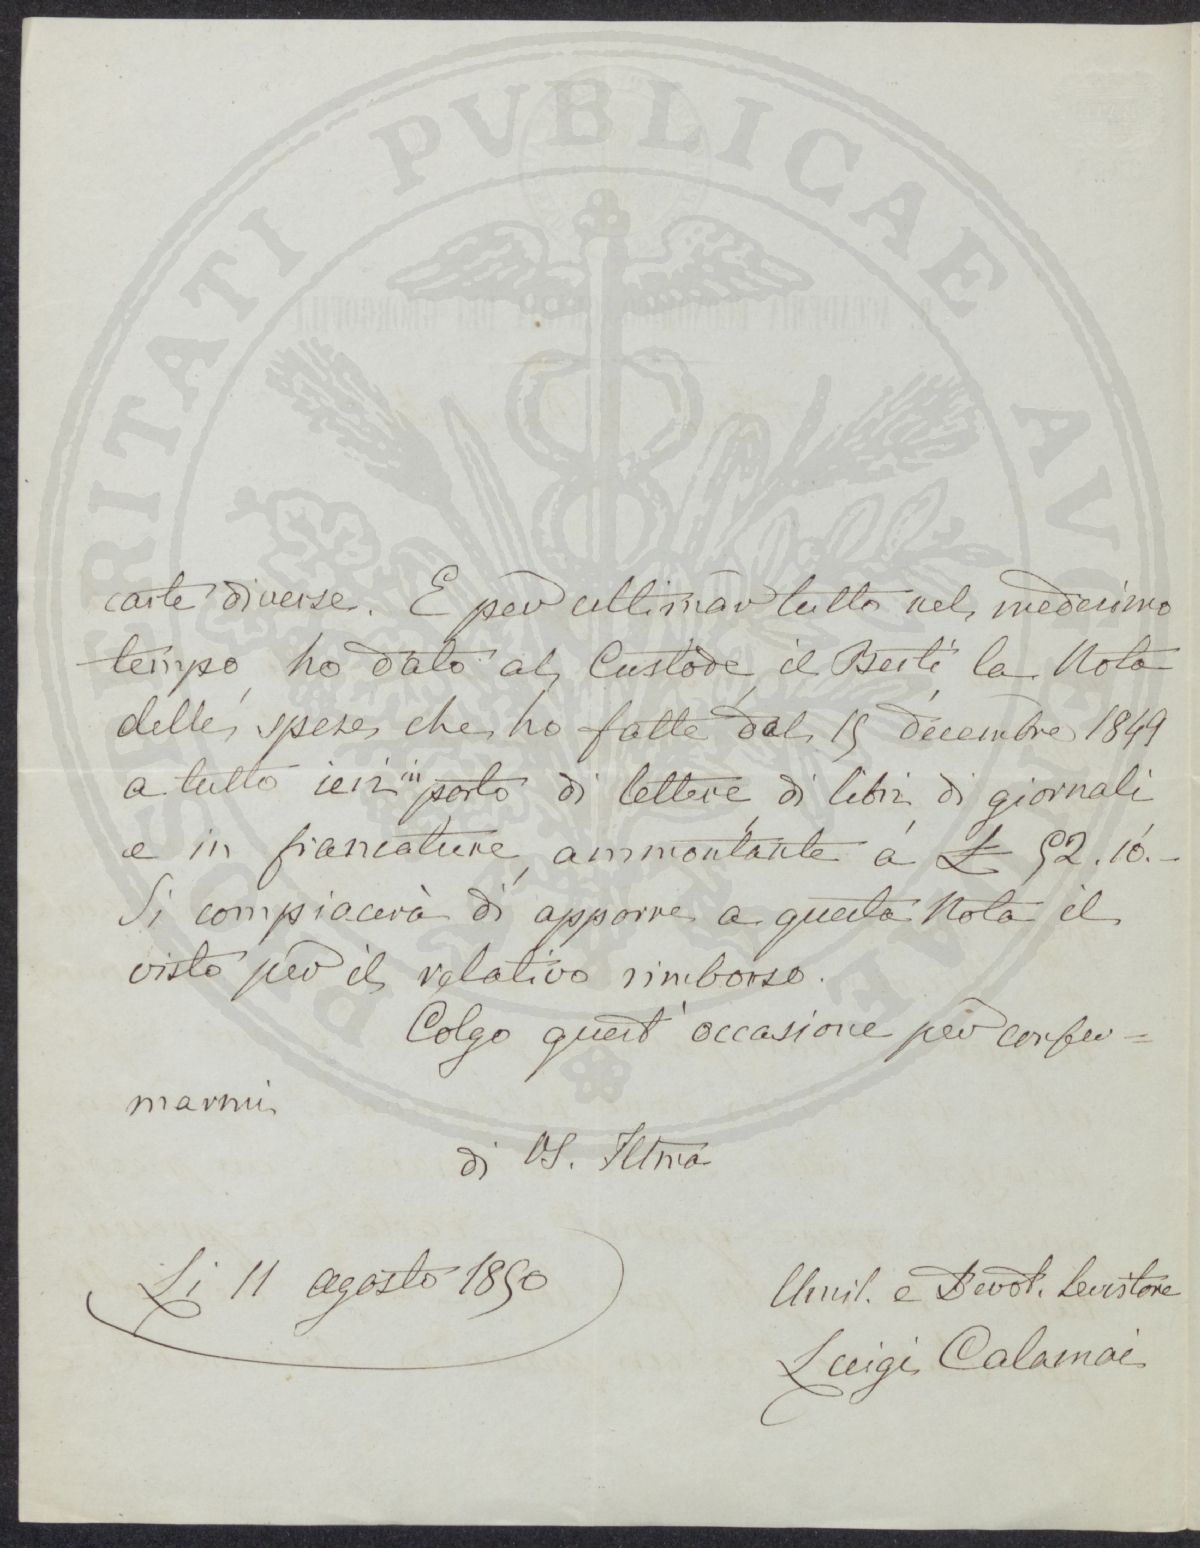 PROSPERITATI PVBLICAE AVGENDAE
carte diverse. E per ultimar tutto nel medesimo
tempo ho dato al Custode il Berti la Nota
delle spese che ho fatte dal 15 decembre 1849
a tutto ieri in porto di lettere di libri di giornali
e in francature, ammontante a £ 52.10.-
Si compiacerà di apporre a questa Nota il
visto per il relativo rimborso.
Colgo quest'occasione per confer=
marmi
di VS. Illma
Li 11 agosto 1850
Umil. e Devot. Servitore
Luigi Calamai